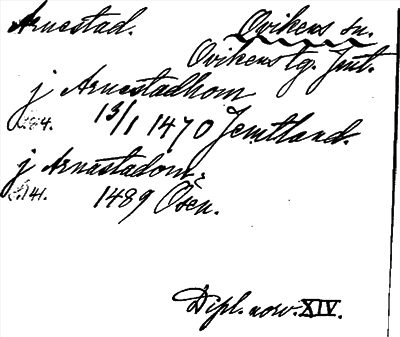 Arnestad. Ovikens sn.
Ovikens tg. Jmt.
j Arnestadhom
s. 84. 13/1 1470 Jemtland.
j Arnastadom.
s. 141. 1489 Osen.
Dipl. norv. XIV.